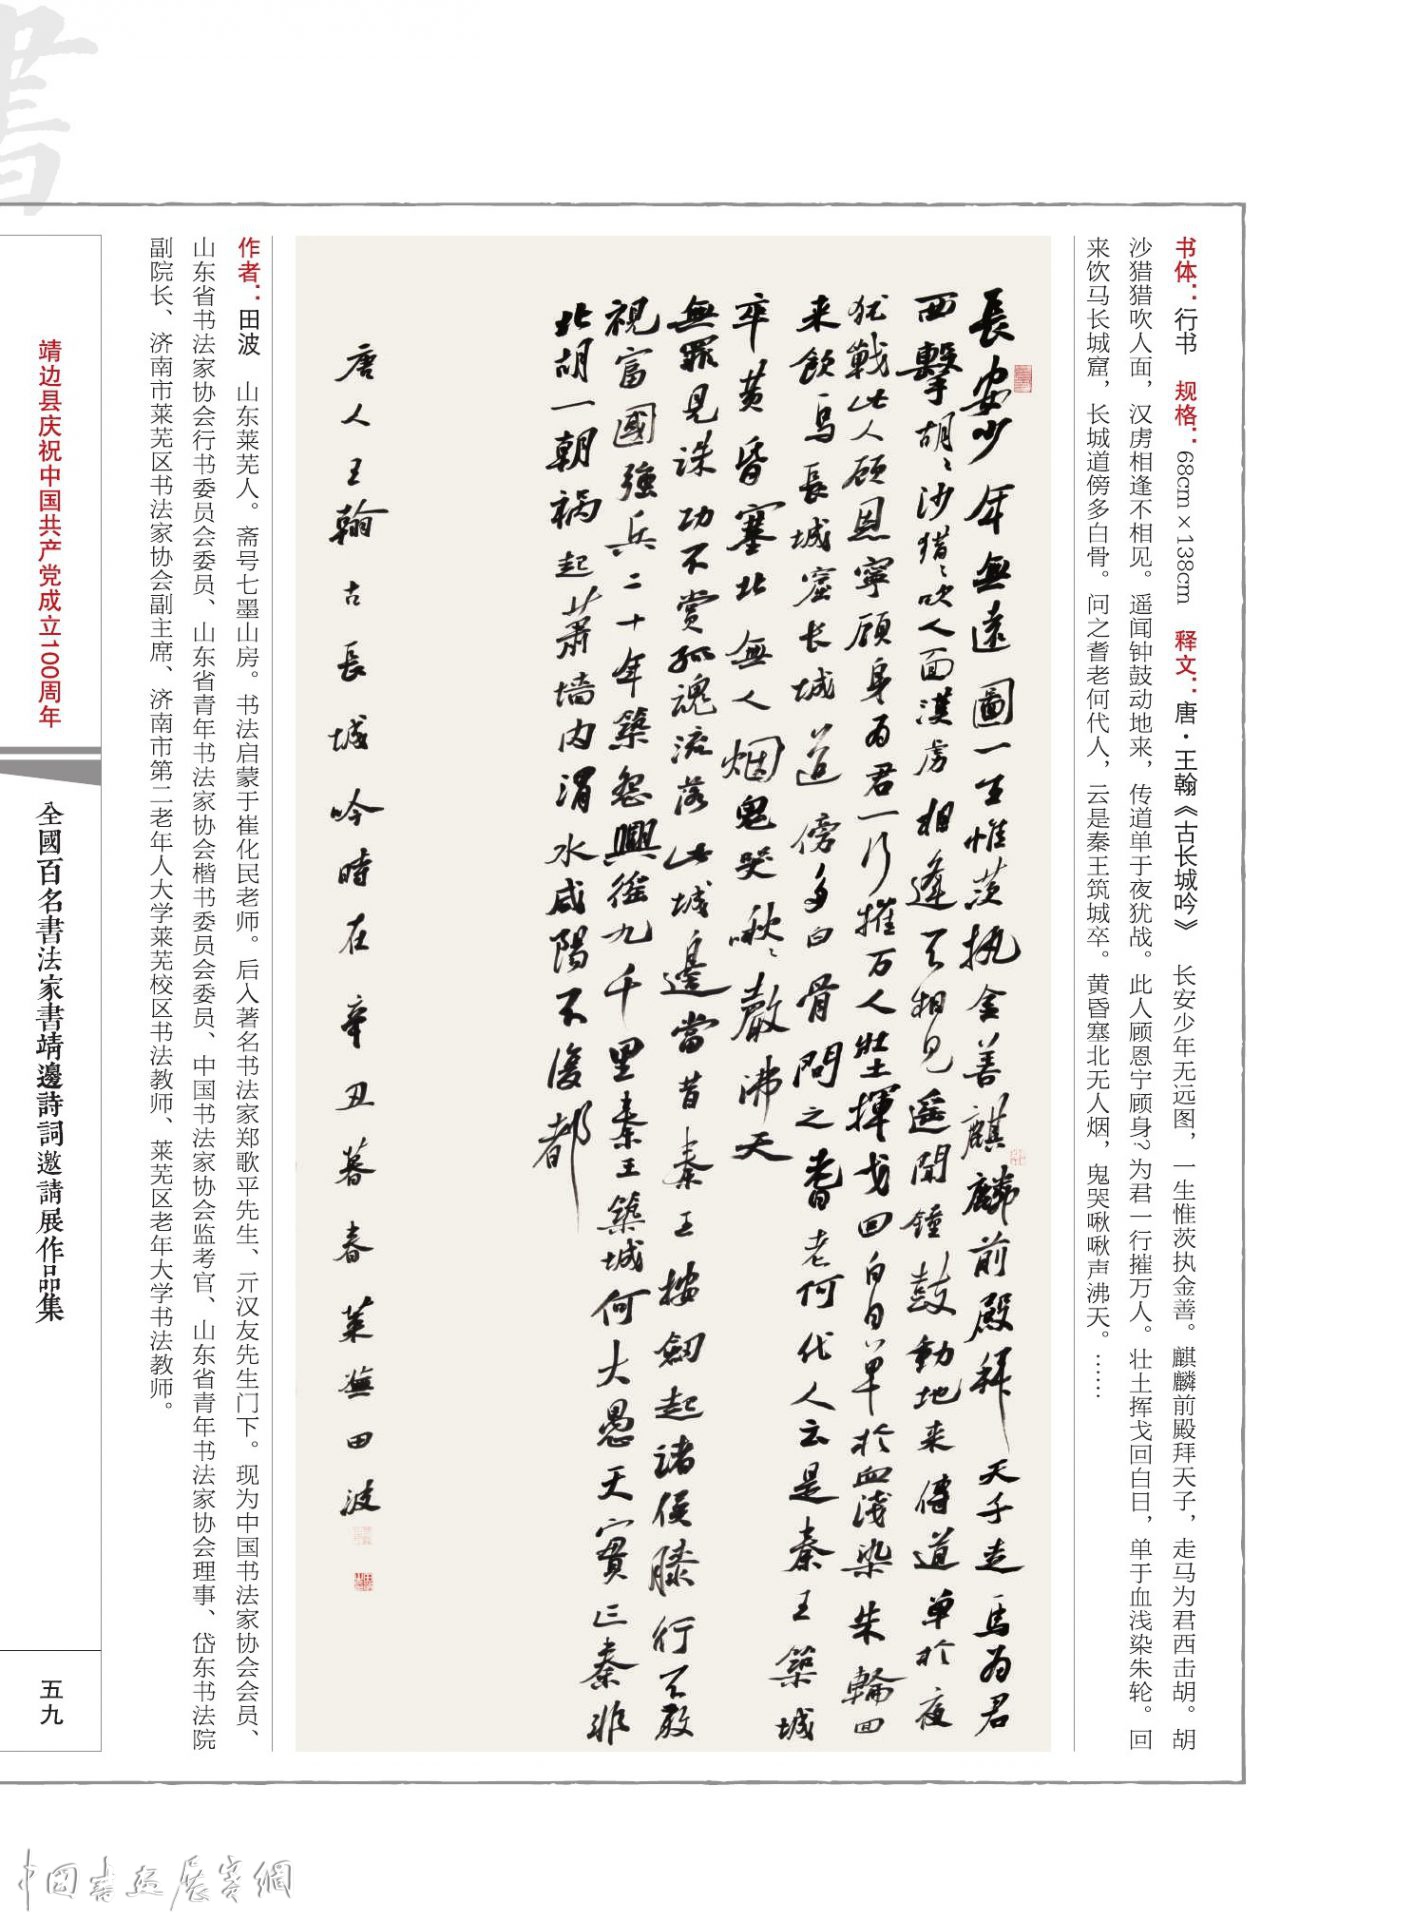 書
书体：行书　规格：68cm×138cm　释文：唐·王翰《古长城吟》　长安少年无远图，一生惟茨执金善。麒麟前殿拜天子，走马为君西击胡。胡
沙猎猎吹人面，汉虏相逢不相见。遥闻钟鼓动地来，传道单于夜犹战。此人顾恩宁顾身？为君一行摧万人。壮士挥戈回白日，单于血浅染朱轮。回
来饮马长城窟，长城道傍多白骨。问之耆老何代人，云是秦王筑城卒。黄昏塞北无人烟，鬼哭啾啾声沸天。……
長安少年無遠圖一生惟茨執金善麒麟前殿拜天子走馬为君
西擊胡〻沙猎〻吹人面漢虏相逢不相見遥闻鍾鼓動地来傳道单於夜
犹戰此人顾恩寧顾身为君一行摧万人壮士揮戈回白日单於血浅染朱輪回
来飲馬長城窟长城道傍多白骨問之耆老何代人云是秦王築城
卒黄昏塞北無人烟鬼哭啾〻聲沸天
無罪見诛功不赏孤魂流落此城邊當昔秦王按劍起诸侯膝行不敢
視富國強兵二十年築怨興徭九千里秦王築城何大愚天實亡秦非
北胡一朝祸起萧墙内渭水咸陽不復都
唐人王翰古長城吟時在辛丑暮春莱蕪田波
作者：田波　山东莱芜人。斋号七墨山房。书法启蒙于崔化民老师。后入著名书法家郑歌平先生、亓汉友先生门下。现为中国书法家协会会员、
山东省书法家协会行书委员会委员、山东省青年书法家协会楷书委员会委员、中国书法家协会监考官、山东省青年书法家协会理事、岱东书法院
副院长、济南市莱芜区书法家协会副主席、济南市第二老年人大学莱芜校区书法教师、莱芜区老年大学书法教师。
靖边县庆祝中国共产党成立100周年
全國百名書法家書靖邊詩詞邀請展作品集
五九
中國書画展賽網